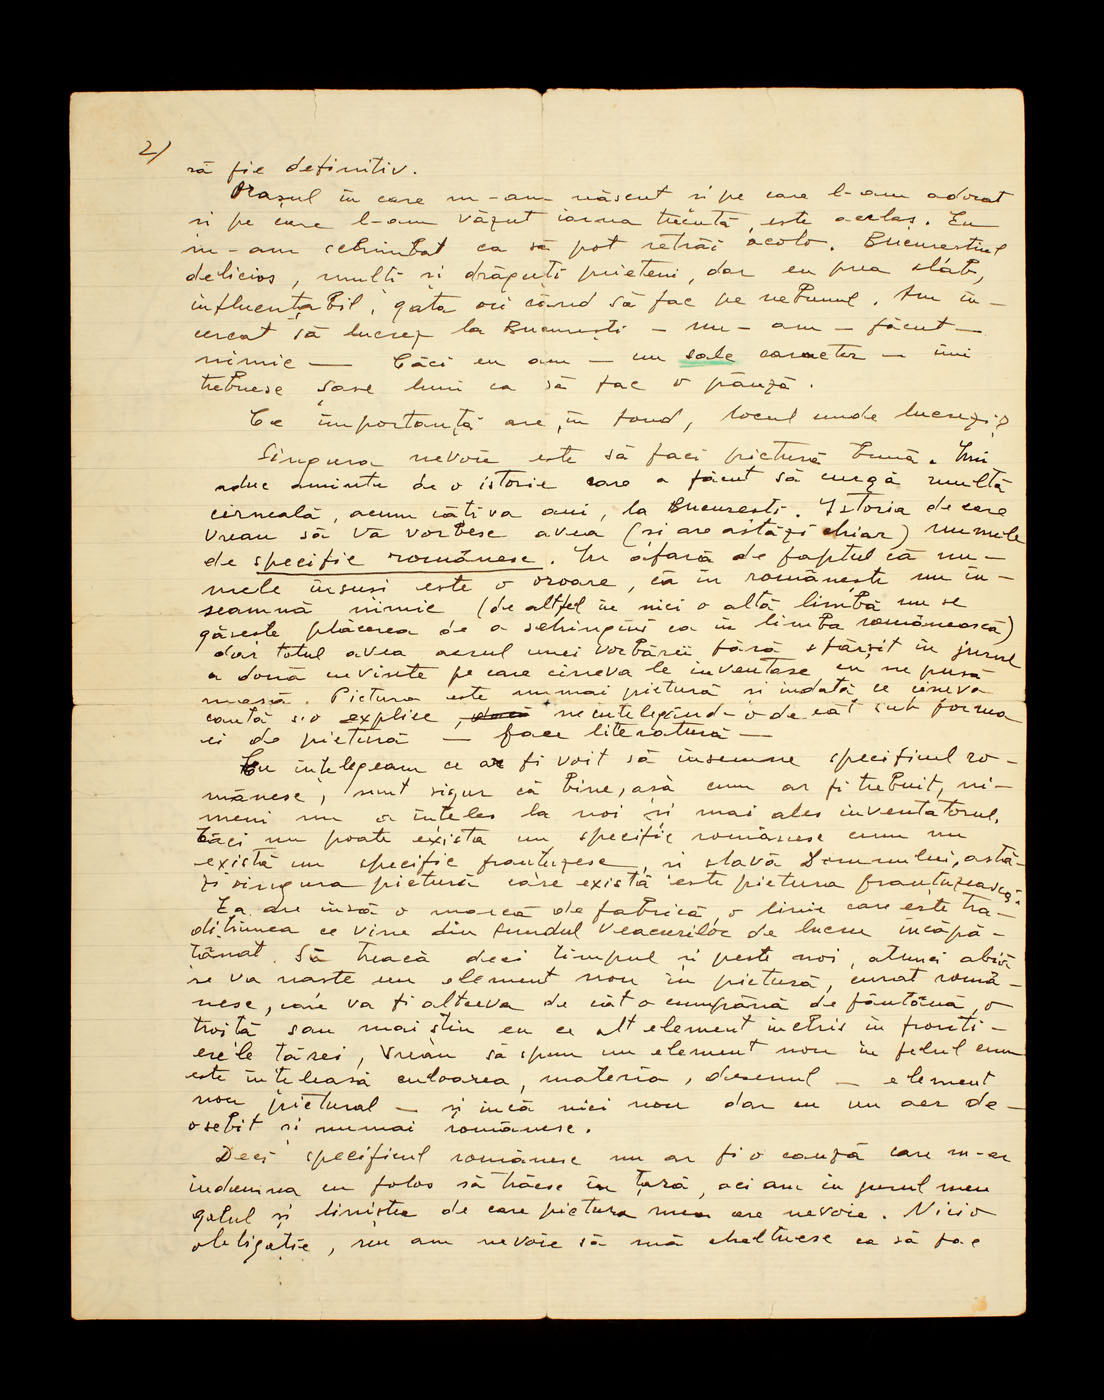 2/
să fie definitiv.
Orașul în care m-am născut și pe care l-am adorat
și pe care l-am văzut iarna trecută, este acelaș. Eu
m-am schimbat ca să pot retrăi acolo. Bucureștiul
delicios, mulți și drăguți prieteni, dar eu prea slab,
influențabil, gata ori când să fac pe nebunul. Am în-
cercat să lucrez la București – nu – am – făcut –
nimic — Căci eu am – un sale caracter – îmi
trebuesc șase luni ca să fac o pânză.
Ce importanță are, în fond, locul unde lucrezi?
Singura nevoie este să faci pictură bună. Îmi
aduc aminte de o istorie care a făcut să curgă multă
cerneală, acum câțiva ani, la București. Istoria de care
vreau să vă vorbesc avea (și are astăzi chiar) numele
de specific românesc. În afară de faptul că nu-
mele însuși este o oroare, că în românește nu în-
seamnă nimic (de altfel în nici o altă limbă nu se
găsește plăcerea de a schingiui ca în limba românească)
dar totul avea aerul unei vorbării fără sfârșit în jurul
a două cuvinte pe care cineva le inventase cu ne pusă
masă. Pictura este numai pictură și îndată ce cineva
caută s'o explice, dacă neînțelegând-o decât sub forma
ei de pictură — face literatură —
Eu înțelegeam ce ar fi voit să însemne specificul ro-
mânesc, sunt sigur că bine, așa cum ar fi trebuit, ni-
meni nu a înțeles la noi și mai ales inventatorul.
Căci nu poate exista un specific românesc cum nu
există un specific franțuzesc, și slavă Domnului, astă-
zi singura pictură care există este pictura franțuzească.
Ea are însă o marcă de fabrică, o linie care este tra-
dițiunea ce vine din fundul veacurilor de lucru încăpă-
țânat. Să treacă deci timpul și peste noi, atunci abia
se va naște un element nou în pictură, curat româ-
nesc, care va fi altceva de cât o cumpănă de fântână, o
troiță sau mai știu eu ce alt element închis în fronti-
erele țărei, vreau să spun un element nou în felul cum
este înțeleasă culoarea, materia, desenul – element
nou pictural – și încă nici nou dar cu un aer de-
osebit și numai românesc.
Deci specificul românesc nu ar fi o cauză care m-ar
îndemna cu folos să trăesc în țară, aci am în jurul meu
golul și liniștea de care pictura mea are nevoie. Nicio
obligație, nu am nevoie să mă cheltuesc ca să fac